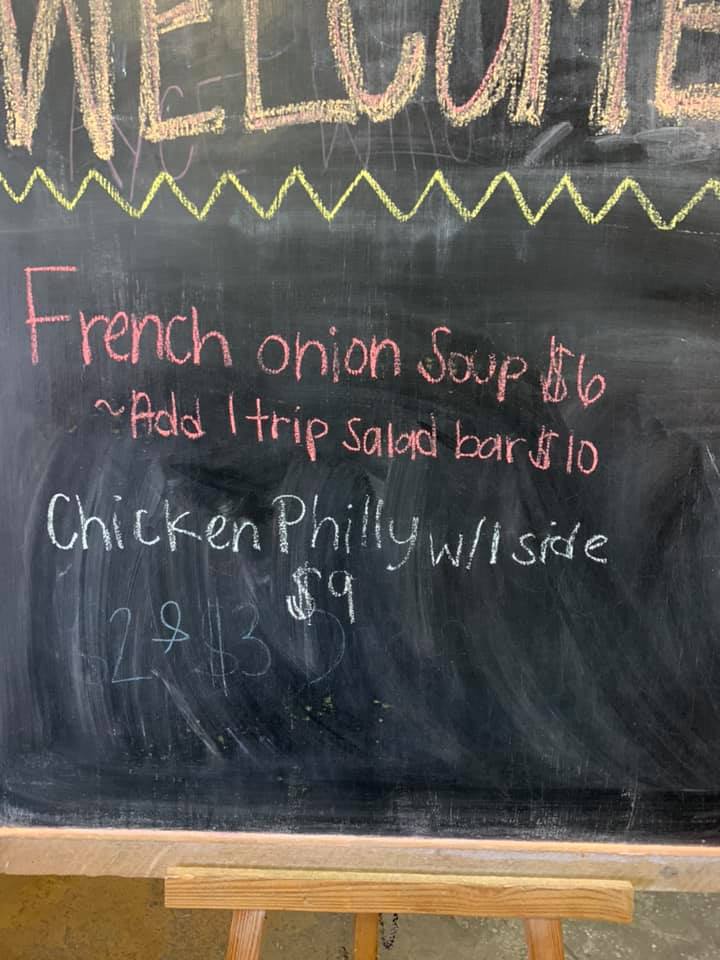 WELCOME
French onion Soup $6
~Add 1 trip salad bar $10
Chicken Philly w/1 side
$9
$2 & $3